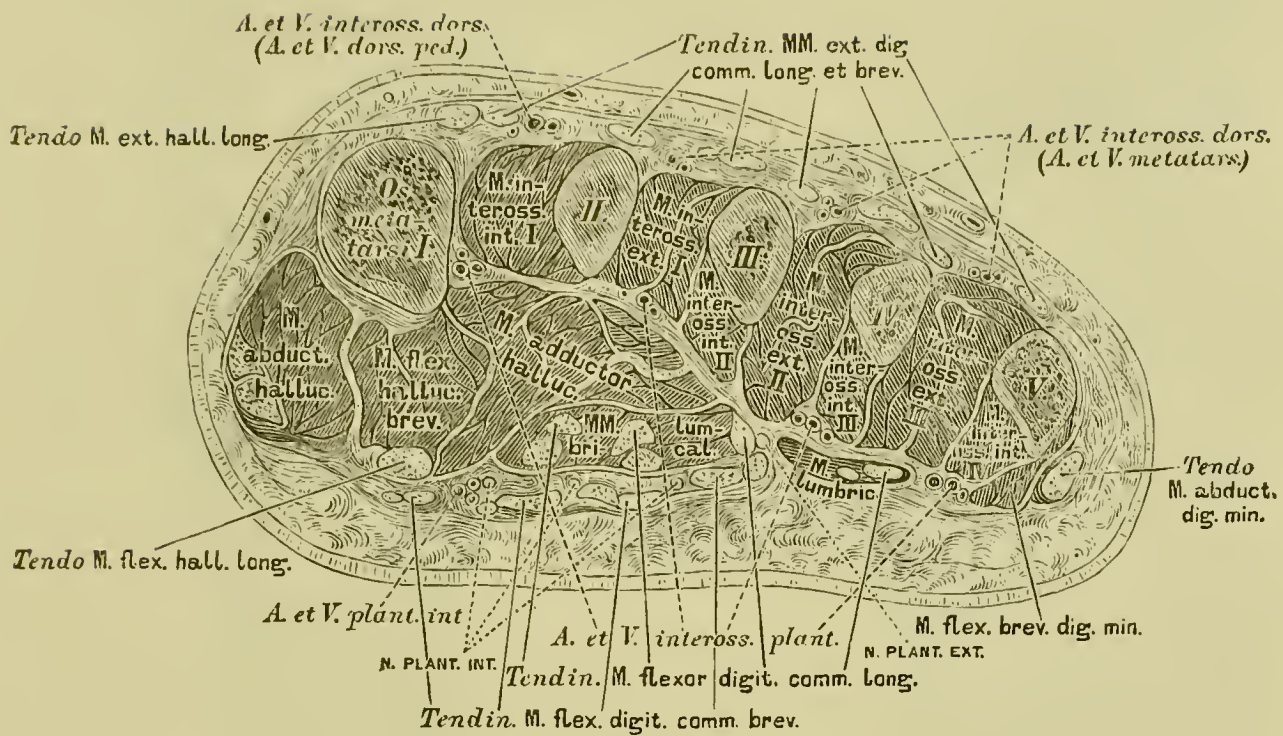 A. et V. inteross. dors.
(A. et V. dors. ped.)
Tendin. MM. ext. dig
comm. long. et brev.
Tendo M. ext. hall. long.
A. et V. inteross. dors.
(A. et V. metatars.)
Os
meta-
tarsi I
M. in-
teross.
int. I
II.
M. in-
teross.
ext. I
III
M.
inter-
oss.
int.
II
M
inter
oss.
ext.
II
M
inter-
oss.
int.
III
IV
M.
inter.
oss
ext
III
M.
inter.
oss. int.
V
M.
abduct.
halluc.
M. flex.
halluc.
brev.
M.
adductor
halluc.
MM.
bri
lum-
cal.
M.
lumbric.
Tendo
M. abduct.
dig. min.
Tendo M. flex. hall. long.
A. et V. plant. int
N. PLANT. INT.
A. et V. inteross. plant.
M. flex. brev. dig. min.
N. PLANT. EXT.
Tendin. M. flexor digit. comm. long.
Tendin. M. flex. digit. comm. brev.